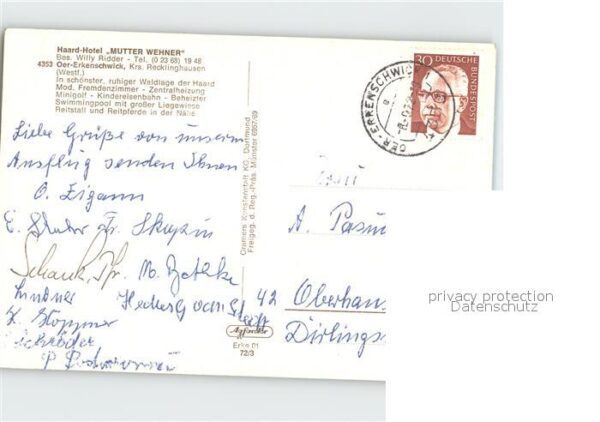 Haard-Hotel „MUTTER WEHNER"
Bes. Willy Ridder - Tel. (0 23 68) 19 48
4353 Oer-Erkenschwick, Krs. Recklinghausen
(Westf.)
In schönster, ruhiger Waldlage der Haard
Mod. Fremdenzimmer - Zentralheizung
Minigolf - Kindereisenbahn - Beheizter
Swimmingpool mit großer Liegewiese
Reitstall und Reitpferde in der Nähe
Liebe Grüße von unserm
Ausflug senden Ihnen
O. Zigann
E. Fr. Skapin
Schank, Fr. M. Bethke
Lindner Hedwig van
K. Stoppner
Schröder
P.
Cramers Kunstanstalt KG, Dortmund
Freigeg. d. Reg.-Präs. Münster 6867/69
Agfacolor
Erke 01
72/3
30 DEUTSCHE BUNDESPOST
OER-ERKENSCHWICK
Frau
A. Pasu
42 Oberhau
Dirlings
privacy protection
Datenschutz